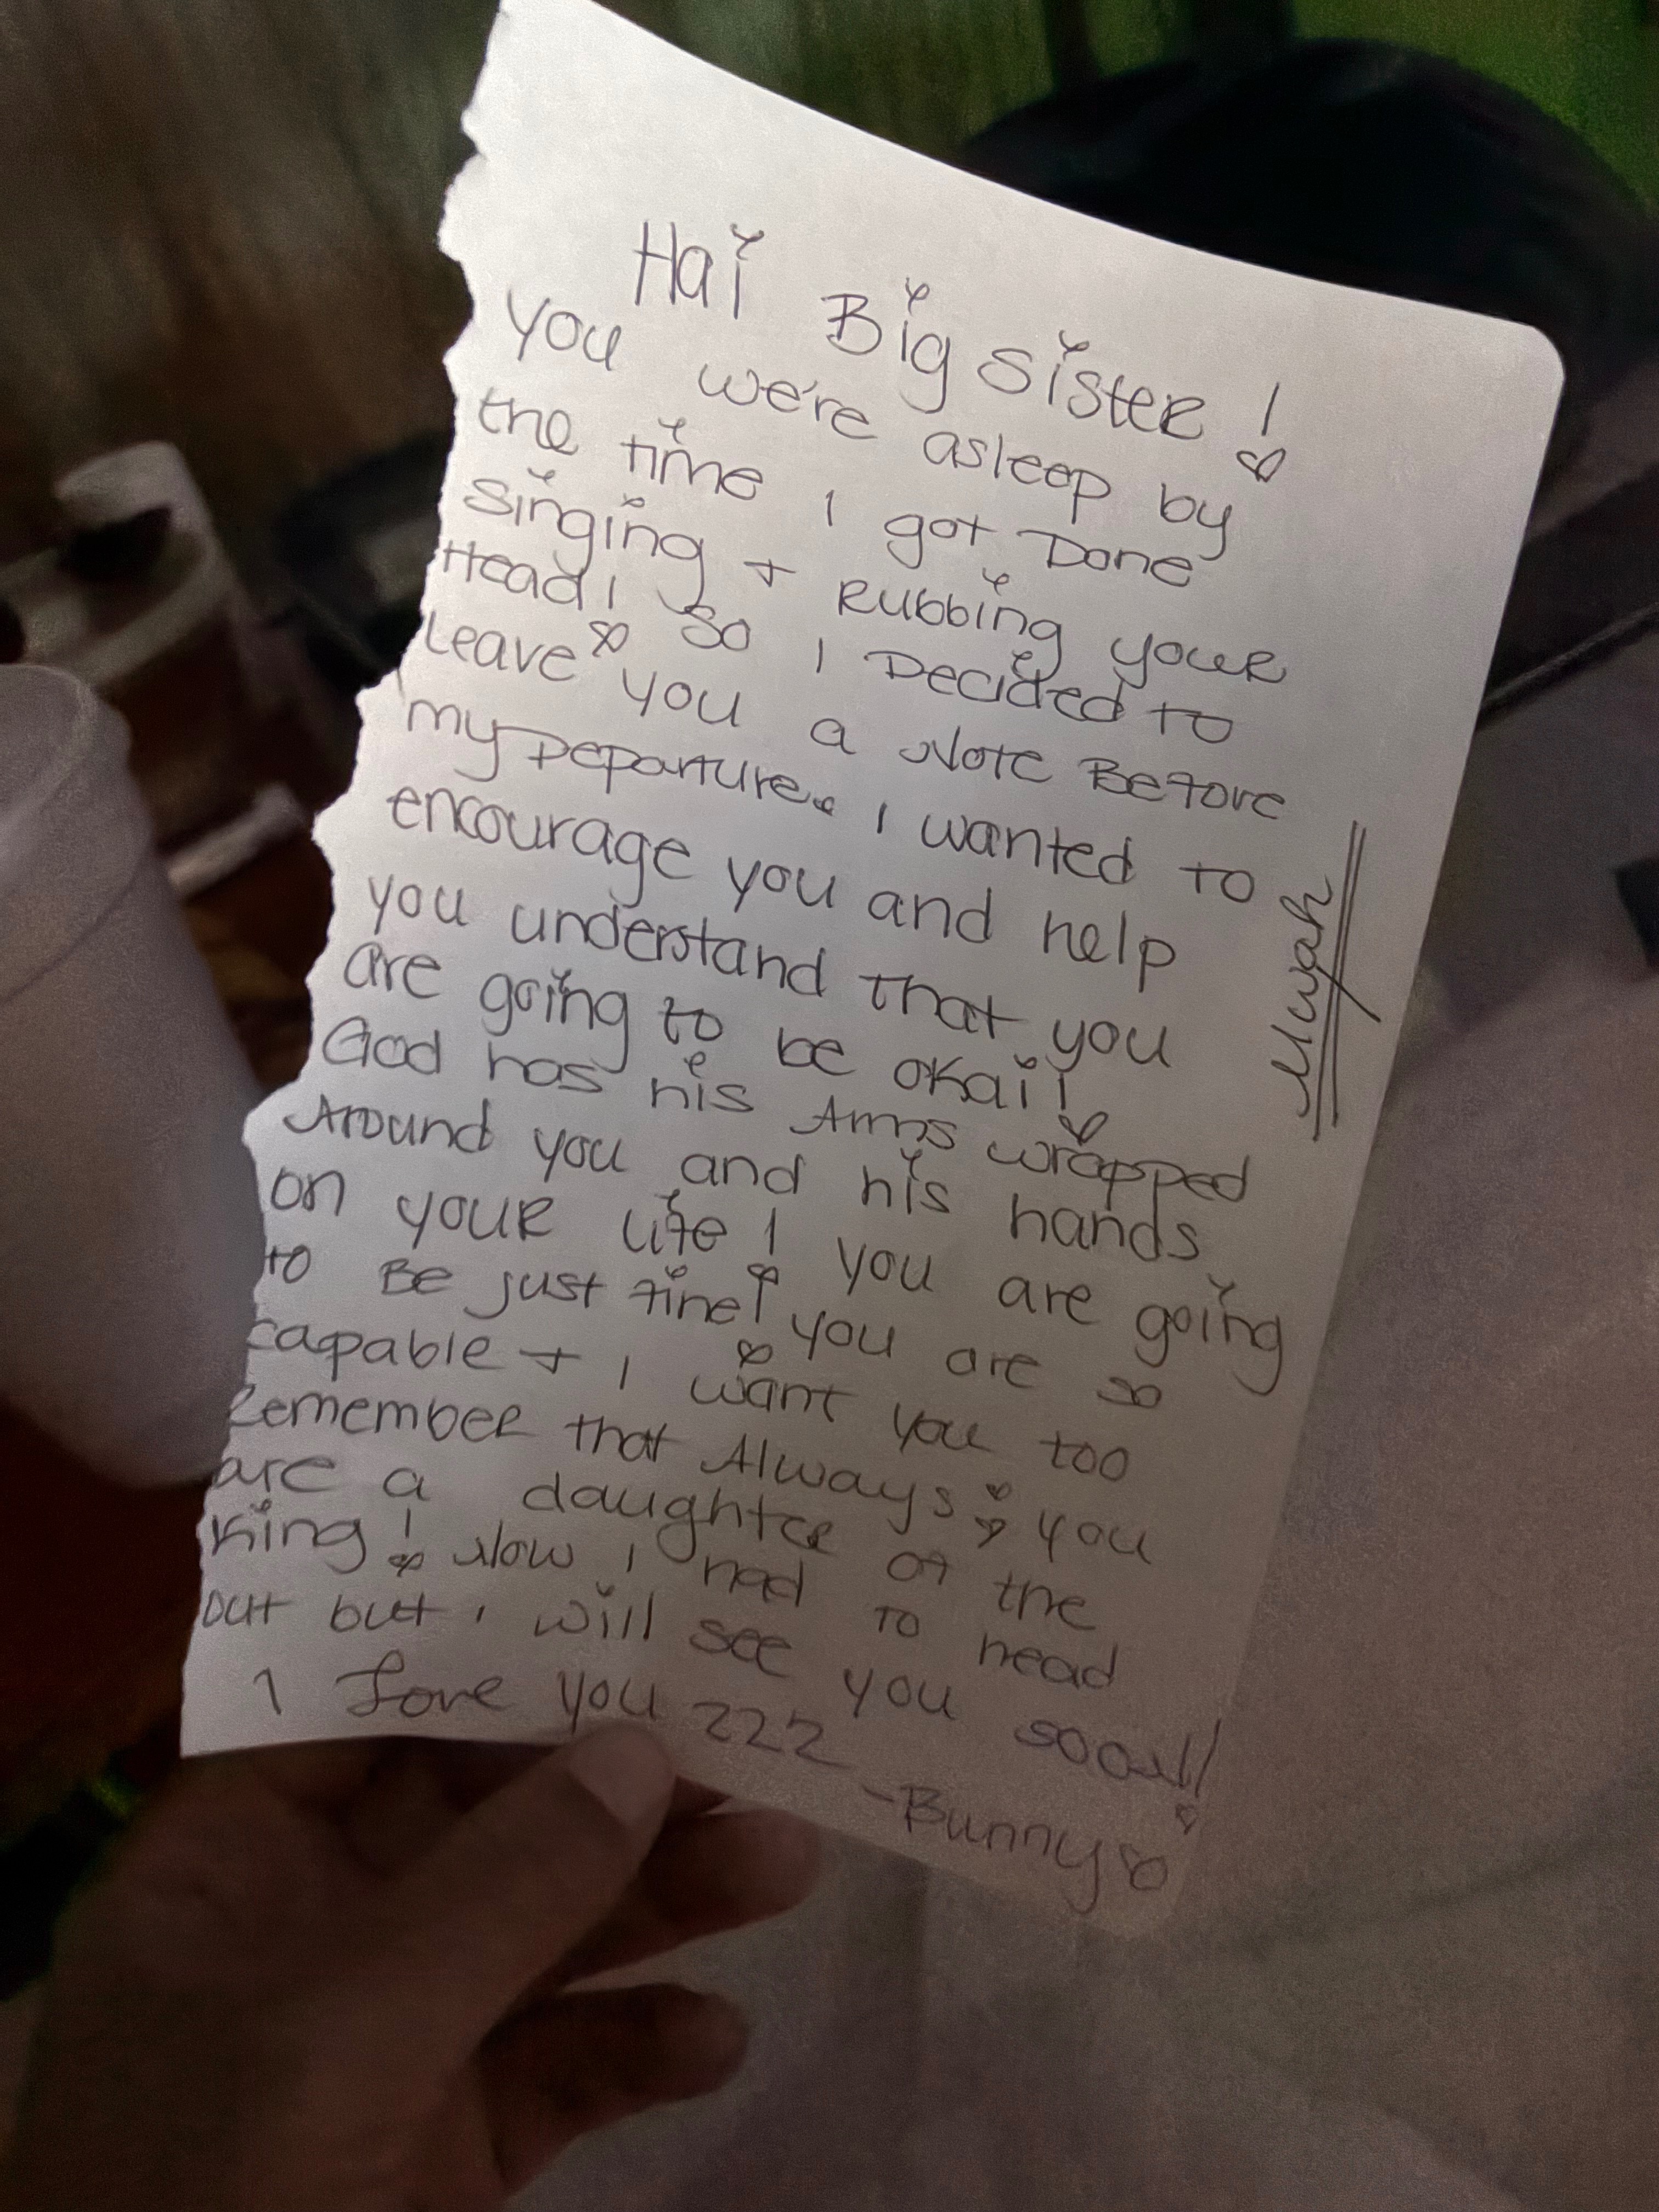 Hai Big sister!
You we're asleep by
the time I got Done
singing + Rubbing your
Head! So I Decided to
Leave you a Note Before
my Departure. I wanted to
encourage you and help
you understand that you
are going to be okai!
God has his Arms wrapped
Around you and his hands
on your life! you are going
to Be just fine! you are so
capable + I want you too
Remember that Always! you
are a daughter of the
King! Now I had to head
out but i will see you soon!!
I Love you 222
-Bunny
Mwah